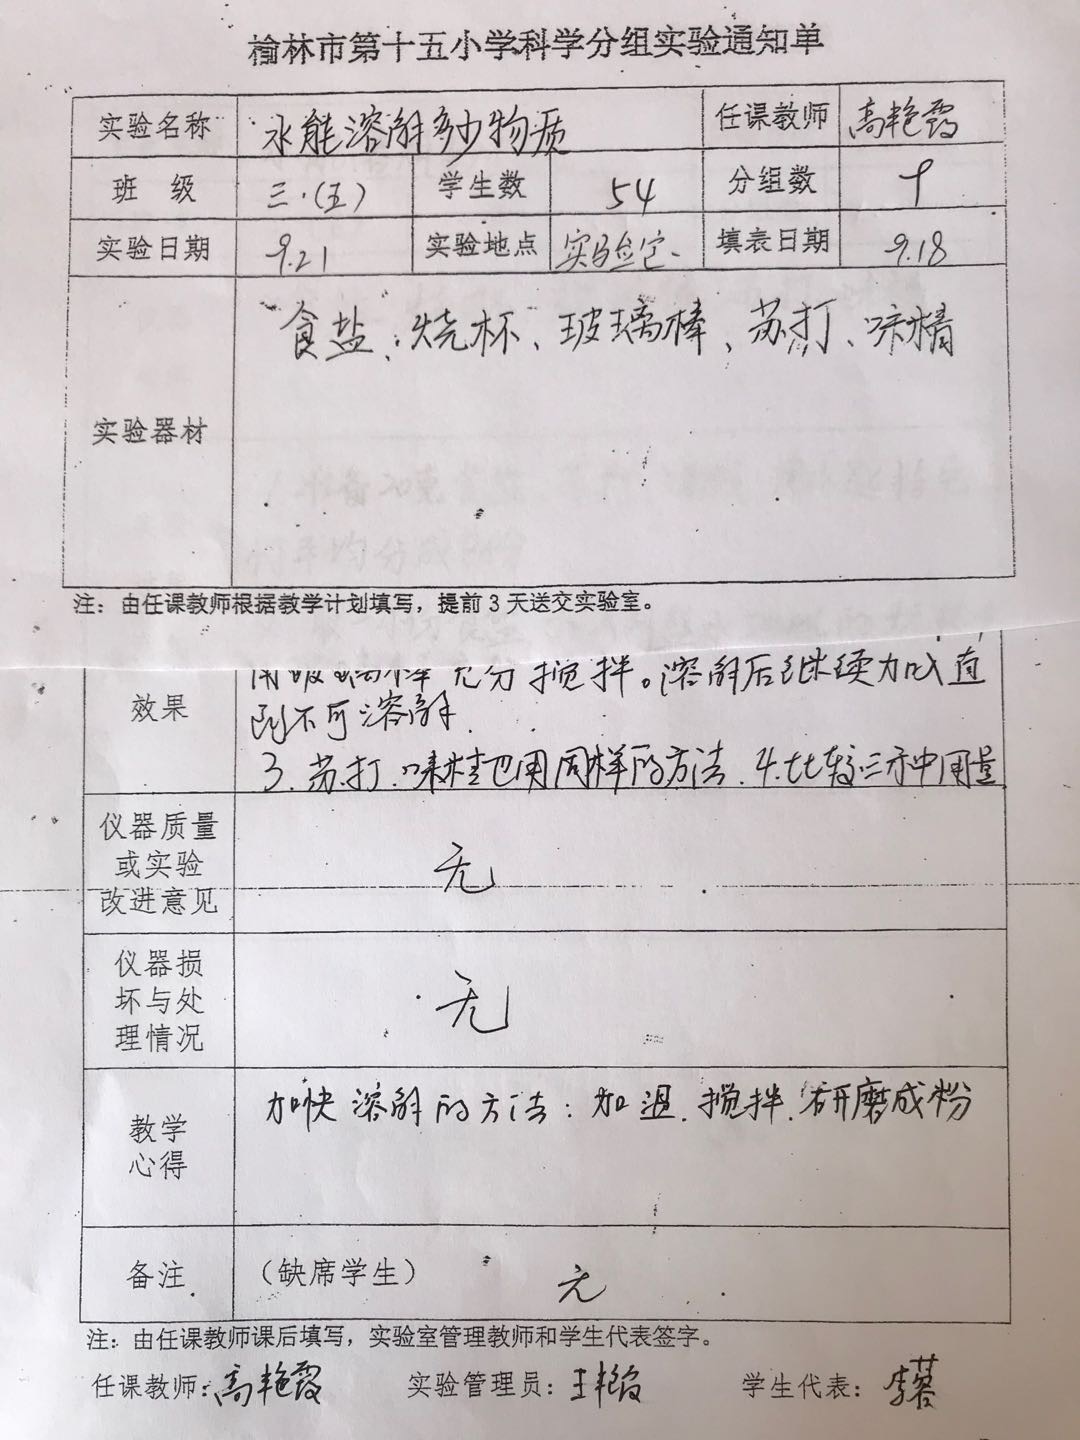 榆林市第十五小学科学分组实验通知单
实验名称 水能溶解多少物质 任课教师 高艳霞
班 级 三.(五) 学生数 54 分组数 9
实验日期 9.21 实验地点 实验室 填表日期 9.18
食盐、烧杯、玻璃棒、苏打、味精
实验器材
注：由任课教师根据教学计划填写，提前3天送交实验室。
用玻璃棒充分搅拌。溶解后继续加以直
效果
到不可溶解.
3.苏打.味精也用同样的方法.4.比较三示中用量
仪器质量
或实验 无
改进意见
仪器损
坏与处 无
理情况
加快溶解的方法：加温.搅拌.研磨成粉
教学
心得
备注 （缺席学生） 无
注：由任课教师课后填写，实验室管理教师和学生代表签字。
任课教师：高艳霞 实验管理员：王艳 学生代表：李